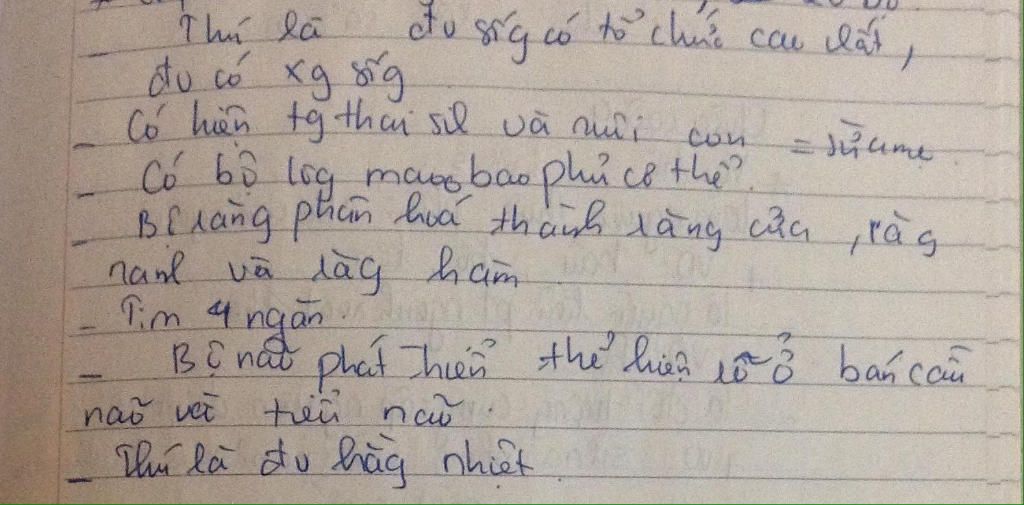 _ Thú là đv sốg có tổ chức cao nhất,
đv có xg sốg
_ Có hiện tg thai sil và nuôi con = sữa mẹ.
_ Có bộ lôg mao bao phủ cơ thể.
_ Bộ răng phân hoá thành răng cửa, răg
nanh và răg hàm
_ Tim 4 ngăn.
_ Bộ não phát triển thể hiện rõ ở bán cầu
não và tiểu não.
_ Thú là đv hằg nhiệt